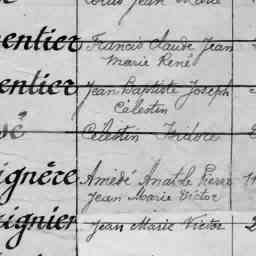 Louis Jean Marie
entier Francis Claude Jean
Marie René
entier Jean Baptiste Joseph
Célestin
sé Célestin Isidore
ignère Amédé Anatole Pierre
Jean Marie Victor
eignier Jean Marie Victor 2